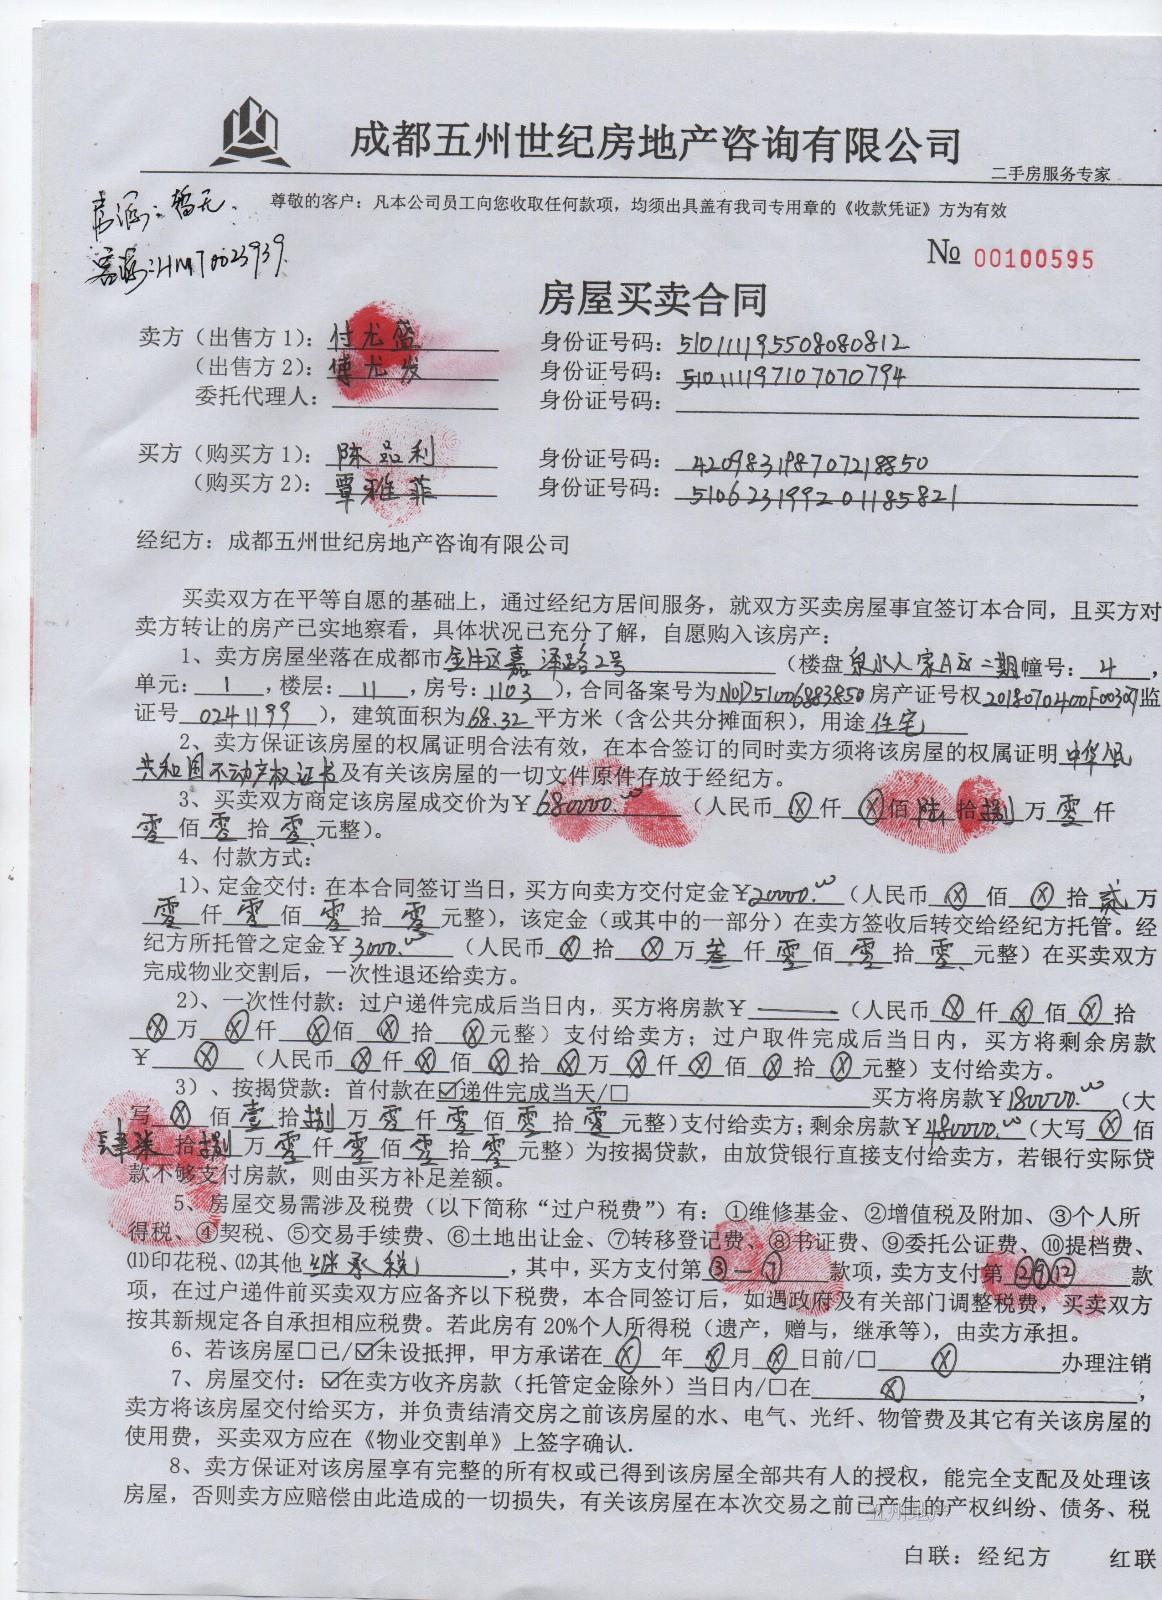 成都五州世纪房地产咨询有限公司
二手房服务专家
尊敬的客户：凡本公司员工向您收取任何款项，均须出具盖有我司专用章的《收款凭证》方为有效
暂无.
HMT0023939.
№ 00100595
房屋买卖合同
卖方（出售方1）：付尤盛 身份证号码：510111195508080812
（出售方2）：傅尤发 身份证号码：510111197107070794
委托代理人： 身份证号码：
买方（购买方1）：陈品利 身份证号码：420983198707218850
（购买方2）：覃雅菲 身份证号码：510623199201185821
经纪方：成都五州世纪房地产咨询有限公司
买卖双方在平等自愿的基础上，通过经纪方居间服务，就双方买卖房屋事宜签订本合同，且买方对
卖方转让的房产已实地察看，具体状况已充分了解，自愿购入该房产：
1、卖方房屋坐落在成都市金牛区嘉泽路2号（楼盘泉水人家A区二期幢号：4，
单元：1，楼层：11，房号：1103），合同备案号为NOD51006883850房产证号权 监
证号0241199），建筑面积为68.32平方米（含公共分摊面积），用途住宅
2、卖方保证该房屋的权属证明合法有效，在本合签订的同时卖方须将该房屋的权属证明中华人民
共和国不动产权证书及有关该房屋的一切文件原件存放于经纪方。
3、买卖双方商定该房屋成交价为￥680000.00（人民币ⓧ仟ⓧ佰陆拾捌万零仟
零佰零拾零元整）。
4、付款方式：
1）、定金交付：在本合同签订当日，买方向卖方交付定金￥20000.00（人民币ⓧ佰ⓧ拾贰万
零仟零佰零拾零元整），该定金（或其中的一部分）在卖方签收后转交给经纪方托管。经
纪方所托管之定金￥3000.00（人民币ⓧ拾ⓧ万叁仟零佰零拾零元整）在买卖双方
完成物业交割后，一次性退还给卖方。
2）、一次性付款：过户递件完成后当日内，买方将房款￥——（人民币ⓧ仟ⓧ佰ⓧ拾
ⓧ万ⓧ仟ⓧ佰ⓧ拾ⓧ元整）支付给卖方；过户取件完成后当日内，买方将剩余房款
￥ⓧ（人民币ⓧ仟ⓧ佰ⓧ拾ⓧ万ⓧ仟ⓧ佰ⓧ拾ⓧ元整）支付给卖方。
3）、按揭贷款：首付款在☑递件完成当天/□ 买方将房款￥180000.00（大
写ⓧ佰壹拾捌万零仟零佰零拾零元整）支付给卖方；剩余房款￥480000.00（大写ⓧ佰
肆拾捌万零仟零佰零拾零元整）为按揭贷款，由放贷银行直接支付给卖方，若银行实际贷
款不够支付房款，则由买方补足差额。
5、房屋交易需涉及税费（以下简称“过户税费”）有：①维修基金、②增值税及附加、③个人所
得税、④契税、⑤交易手续费、⑥土地出让金、⑦转移登记费、⑧书证费、⑨委托公证费、⑩提档费、
⑾印花税、⑿其他继承税，其中，买方支付第 款项，卖方支付第②⑨⑫款
项，在过户递件前买卖双方应备齐以下税费，本合同签订后，如遇政府及有关部门调整税费，买卖双方
按其新规定各自承担相应税费。若此房有20%个人所得税（遗产，赠与，继承等），由卖方承担。
6、若该房屋□已/☑未设抵押，甲方承诺在ⓧ年ⓧ月ⓧ日前/□ⓧ办理注销
7、房屋交付：☑在卖方收齐房款（托管定金除外）当日内/□在ⓧ，
卖方将该房屋交付给买方，并负责结清交房之前该房屋的水、电气、光纤、物管费及其它有关该房屋的
使用费，买卖双方应在《物业交割单》上签字确认.
8、卖方保证对该房屋享有完整的所有权或已得到该房屋全部共有人的授权，能完全支配及处理该
房屋，否则卖方应赔偿由此造成的一切损失，有关该房屋在本次交易之前已产生的产权纠纷、债务、税
五州地产
白联：经纪方 红联